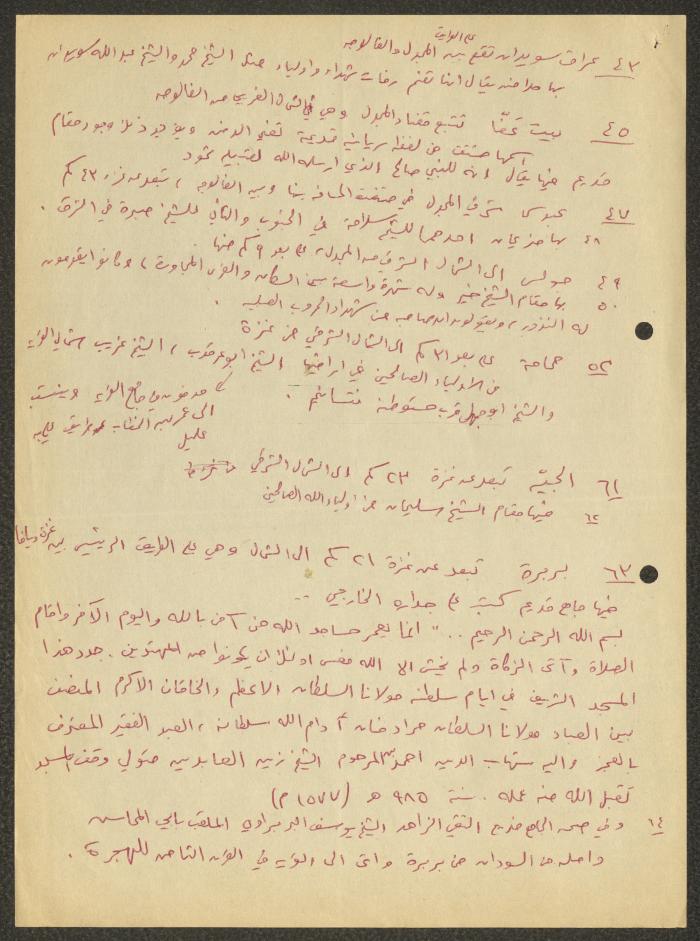 على الطريق
٤٣ عراق سويدان تقع بين المجدل والفالوجه
بها مدافن يقال انها تضم رفات شهداء واولياء مثل الشيخ محمد والشيخ عبد الله سويدان
٤٥ بيت عفّا تتبع قضاء المجدل وهي في الشمال الغربي من الفالوجه
اسمها مشتق من لفظه سريانية قديمة تعني الدفن ويؤيد ذلك وجود مقام
قديم فيها يقال انه للنبي صالح الذي ارسله الله لقبيله ثمود
٤٧ عبدس شرقي المجدل في منتصف المسافه بينها وبين الفالوجه ، تبعد عن غزه ٤٣ كم
٤٨ بها مزاران احدهما للشيخ سلامة في الجنوب والثاني للشيخ صبرة في الشرق .
٤٩ جولس الى الشمال الشرقي من المجدل، على بعد ٩ كم منها
٥٠ بها مقام الشيخ خير وله شهرة واسعة بين السكان والقرى المجاورة ، وكانوا يقدمون
له النذور ، ويقولون ان صاحبه من شهداء الحروب الصليبيه .
٥٢ حمامة على بعد ٣١ كم الى الشمال الشرقي من غزة
من الاولياء الصالحين في اراضيها الشيخ ابو عرقوب ، الشيخ غريب شمالي القريه
والشيخ ابو جهم قرب مستوطنة نتسانيم .
مدفون في جامع القريه وينتسب
الى عمر بن الخطاب عن طريق علي بن
عليل
٦١ الجيّه تبعد عن غزة ٢٣ كم الى الشمال الشرقي من غزة
٦٢ فيها مقام الشيخ سليمان من اولياء الله الصالحين
٦٣ بربرة تبعد عن غزة ٢١ كم الى الشمال وهي على الطريق الرئيسي بين غزة ويافا
فيها جامع قديم كتب على جداره الخارجي ..
بسم الله الرحمن الرحيم .. " انما يعمر مساجد الله من آمن بالله واليوم الآخر واقام
الصلاة وآتى الزكاة ولم يخش الا الله فعسى اولئك ان يكونوا من المهتدين . جدد هذا
المسجد الشريف في ايام سلطنة مولانا السلطان الاعظم والخاقان الاكرم المنصف
بين العباد مولانا السلطان مراد خان أدام الله سلطانه ، العبد الفقير المعترف
بالعجز واليه شهاب الدين احمد بن المرحوم الشيخ زين العابدين متولي وقف المسجد
تقبل الله منه عمله . سنة ٩٨٥ هـ (١٥٧٧ م)
٦٤ وفي صحن الجامع ضريح التقي الزاهد الشيخ يوسف البربراوي الملقب بابي المحاسن
واصله من السودان من بربرة واتى الى القريه في القرن الثامن للهجرة .